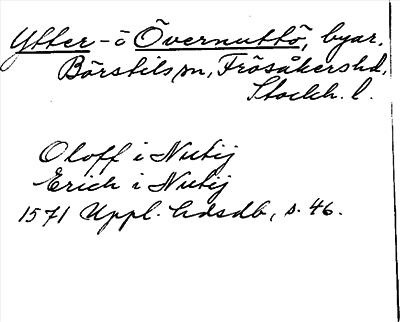 Ytter- o Övernuttö, byar,
Börstils sn, Frösåkers hd,
Stockh. l.
Oloff i Nutij
Erich i Nutij
1571 Uppl. hdsdb, s. 46.